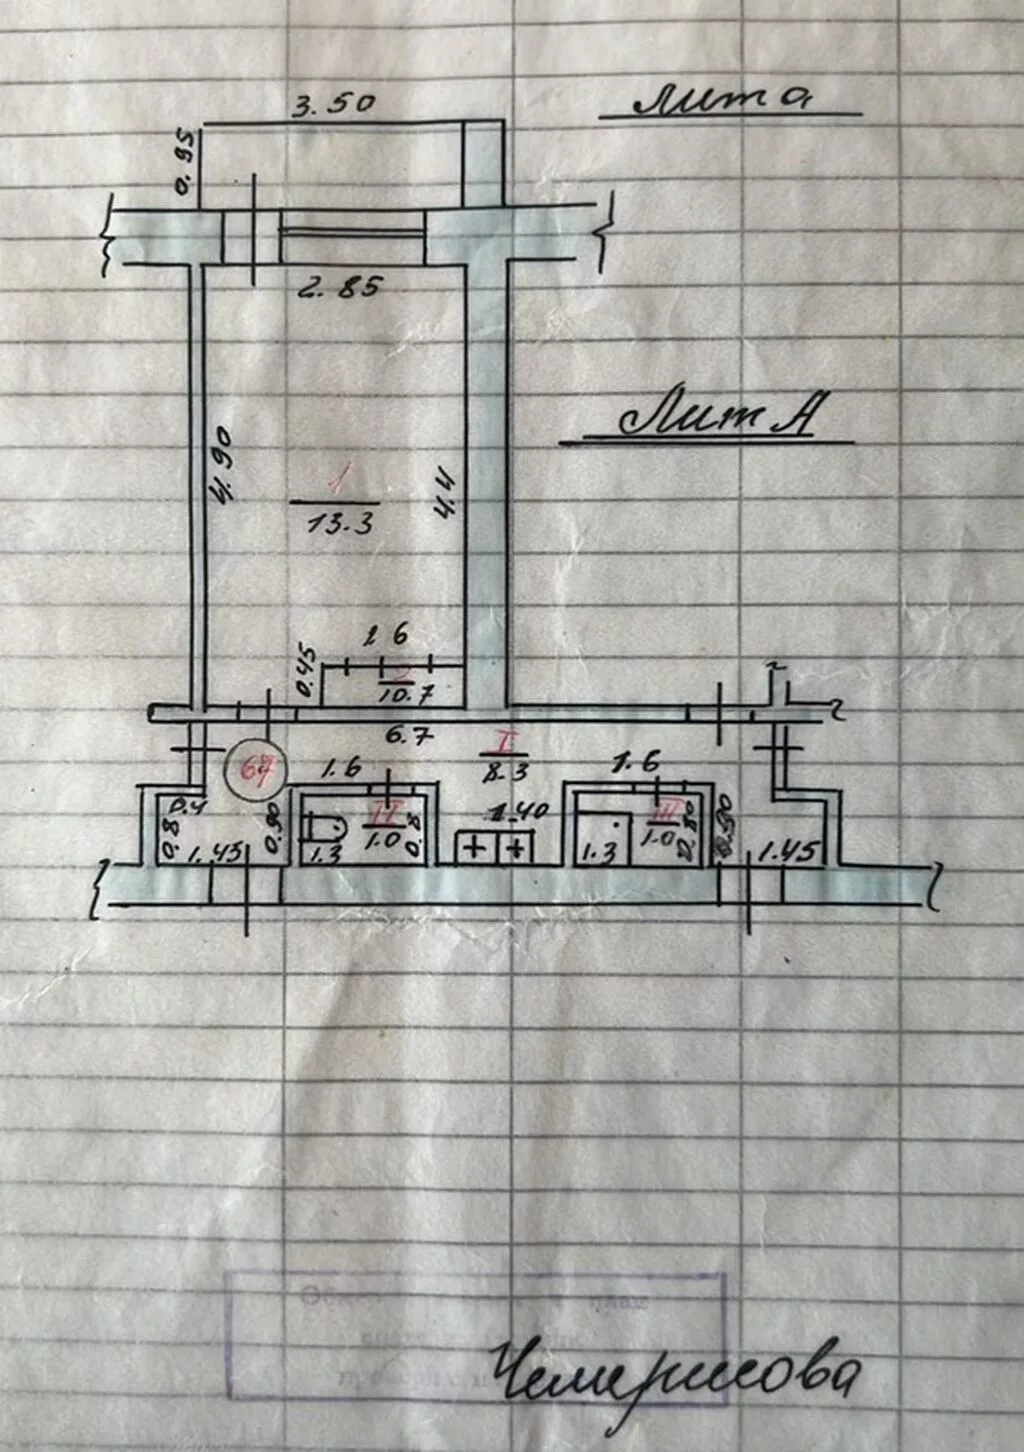 Лит а
3.50
0.95
2.85
Лит А
4.90
1
13.3
4.4
1.6
0.45
2
0.7
6.7
I
8.3
67
1.6
1.6
0.4
0.8
1.45
0.90
II
1.0
1.3
0.8
1.40
III
1.0
1.3
0.80
0.90
1.45
Чемерисова